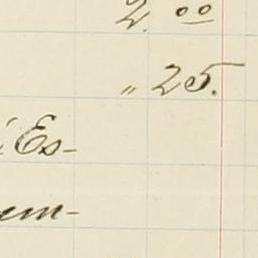 2. 00
" 25.
Es-
em-